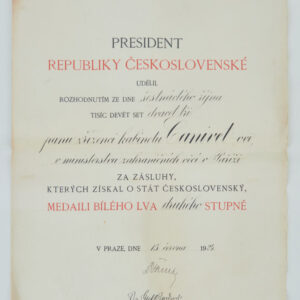 PRESIDENT
REPUBLIKY ČESKOSLOVENSKÉ
UDĚLIL
ROZHODNUTÍM ZE DNE šestnáctého října
TISÍC DEVĚT SET dvacet tři
panu zřízenci kabinetu
v ministerstvu zahraničních věcí v Paříži
ZA ZÁSLUHY,
KTERÝCH ZÍSKAL O STÁT ČESKOSLOVENSKÝ,
MEDAILI BÍLÉHO LVA druhého STUPNĚ
V PRAZE, DNE 15 června 19